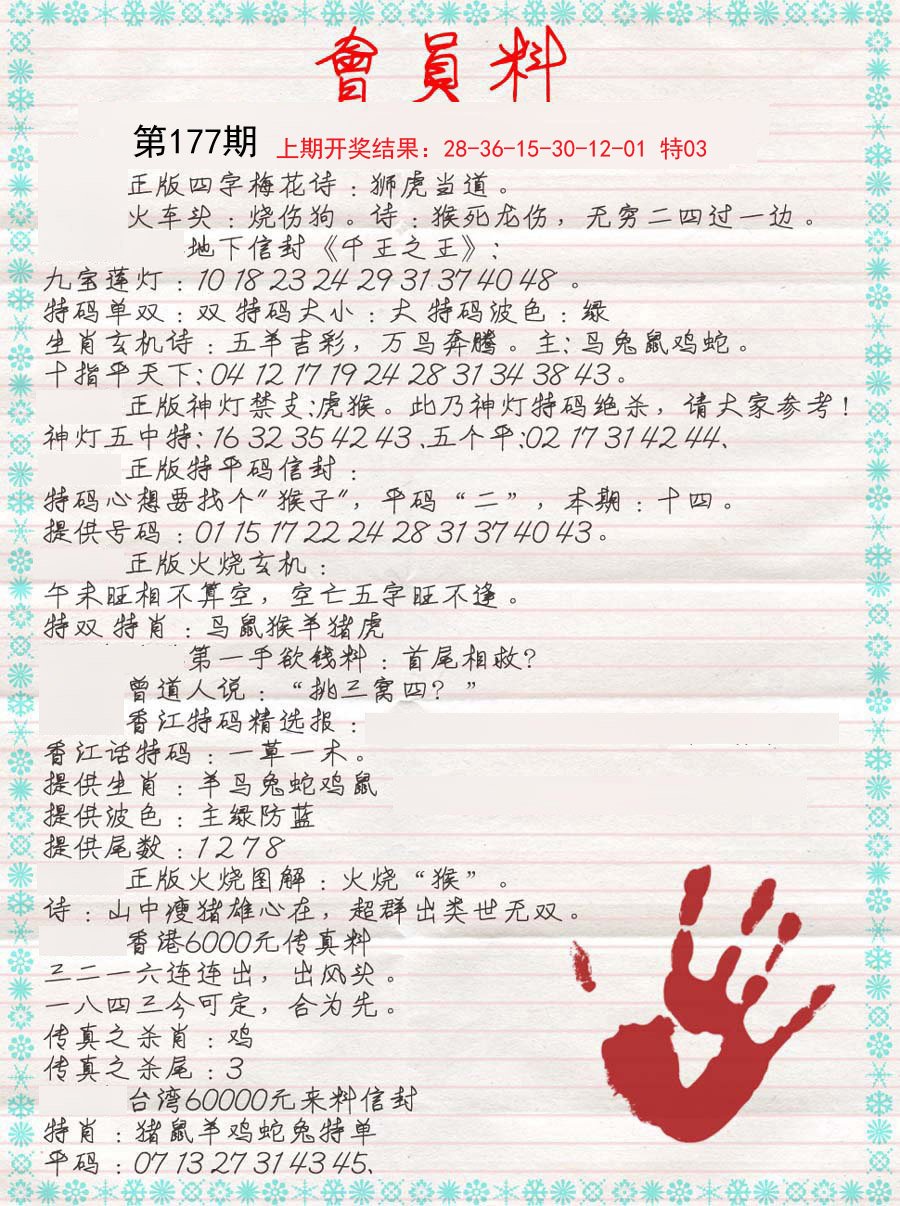 會員料
第177期 上期开奖结果：28-36-15-30-12-01 特03
正版四字梅花诗：狮虎当道。
火车头：烧伤狗。诗：猴死龙伤，无穷二四过一边。
地下信封《千王之王》：
九宝莲灯：10 18 23 24 29 31 37 40 48 。
特码单双：双 特码大小：大 特码波色：绿
生肖玄机诗：五羊吉彩，万鸟奔腾。主：鸟兔鼠鸡蛇。
十指平天下：04 12 17 19 24 28 31 34 38 43。
正版神灯禁支：虎猴。此乃神灯特码绝杀，请大家参考！
神灯五中特：16 32 35 42 43、五个平：02 17 31 42 44、
正版特平码信封：
特码心想要找个"猴子"，平码“二”，本期：十四。
提供号码：01 15 17 22 24 28 31 37 40 43。
正版火烧玄机：
午未旺相不算空，空亡五字旺不逢。
特双 特肖：鸟鼠猴羊猪虎
第一手欲钱料：首尾相救？
曾道人说：“挑三窝四？”
香江特码精选报：
香江话特码：一草一木。
提供生肖：羊鸟兔蛇鸡鼠
提供波色：主绿防蓝
提供尾数：1 2 7 8
正版火烧图解：火烧“猴”。
诗：山中瘦猪雄心在，超群出类世无双。
香港6000元传真料
三二一六连连出，出风头。
一八四三今可定，合为先。
传真之杀肖：鸡
传真之杀尾：3
台湾60000元来料信封
特肖：猪鼠羊鸡蛇兔特单
平码：07 13 27 31 43 45、